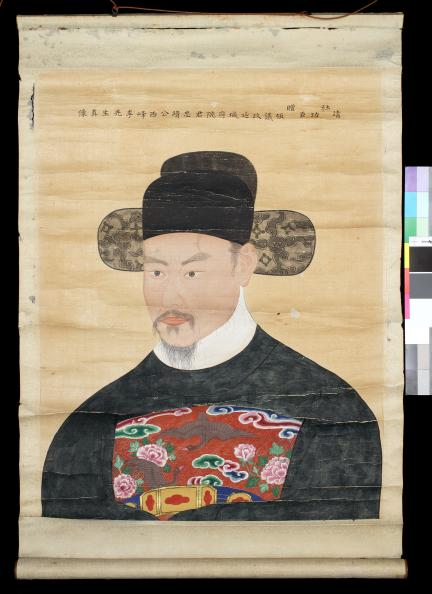 靖社功臣贈領議政延城府院君忠靖公西峰李先生真像